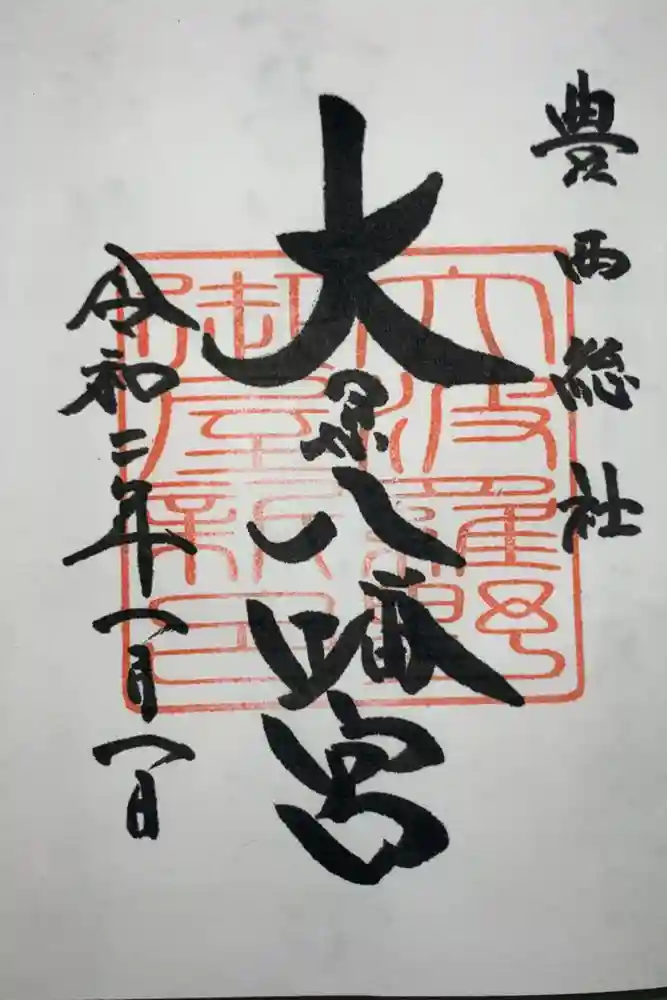 豊西総社
大原八幡宮
令和二年一月一日